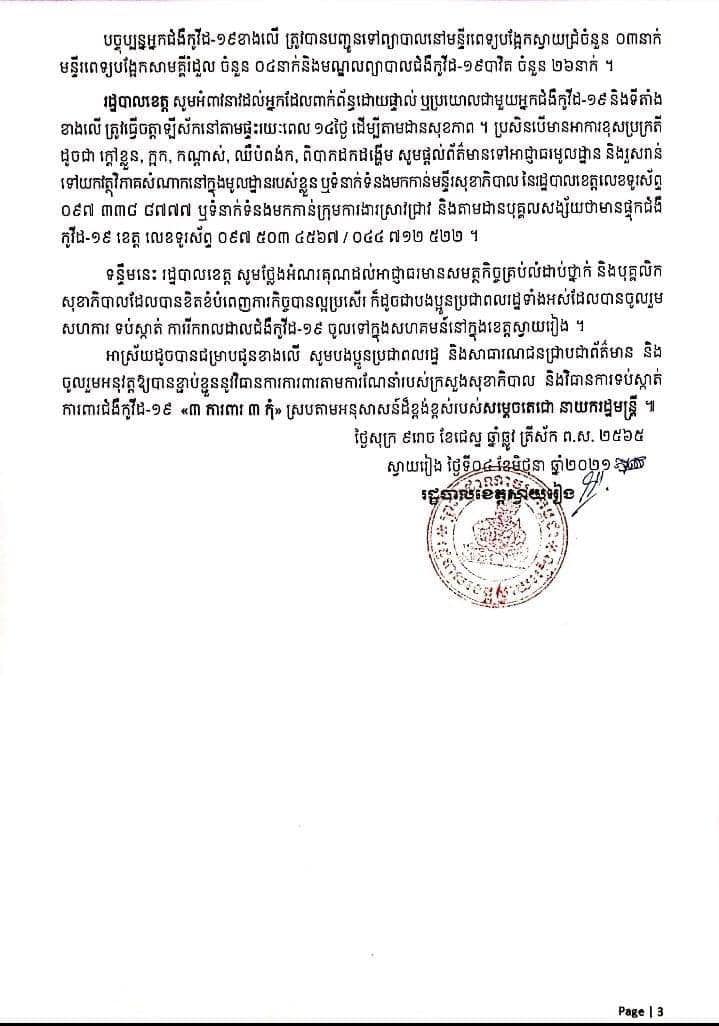 បច្ចុប្បន្នអ្នកជំងឺកូវីដ-១៩ខាងលើ ត្រូវបានបញ្ជូនទៅព្យាបាលនៅមន្ទីរពេទ្យបង្អែកស្វាយជ្រំចំនួន ០៣នាក់
មន្ទីរពេទ្យបង្អែកសាមគ្គីរំដួល ចំនួន ០៤នាក់និងមណ្ឌលព្យាបាលជំងឺកូវីដ-១៩បាវិត ចំនួន ២៦នាក់ ។
រដ្ឋបាលខេត្ត សូមអំពាវនាវដល់អ្នកដែលពាក់ព័ន្ធដោយផ្ទាល់ ឬប្រយោលជាមួយអ្នកជំងឺកូវីដ-១៩ និងទីតាំង
ខាងលើ ត្រូវធ្វើចត្តាឡីស័កនៅតាមផ្ទះរយៈពេល ១៤ថ្ងៃ ដើម្បីតាមដានសុខភាព ។ ប្រសិនបើមានអាការៈខុសប្រក្រតី
ដូចជា ក្តៅខ្លួន, ក្អក, កណ្តាស់, ឈឺបំពង់ក, ពិបាកដកដង្ហើម សូមផ្តល់ព័ត៌មានទៅអាជ្ញាធរមូលដ្ឋាន និងរួសរាន់
ទៅយកវត្ថុវិភាគសំណាកនៅក្នុងមូលដ្ឋានរបស់ខ្លួន ឬទំនាក់ទំនងមកកាន់មន្ទីរសុខាភិបាល នៃរដ្ឋបាលខេត្តលេខទូរស័ព្ទ
០៩៧ ៣៣៨ ៨៧៧៧ ឬទំនាក់ទំនងមកកាន់ក្រុមការងារស្រាវជ្រាវ និងតាមដានបុគ្គលសង្ស័យថាមានផ្ទុកជំងឺ
កូវីដ-១៩ ខេត្ត លេខទូរស័ព្ទ ០៩៧ ៥០៣ ៤៥៦៧ / ០៤៤ ៧១២ ៥២២ ។
ទន្ទឹមនេះ រដ្ឋបាលខេត្ត សូមថ្លែងអំណរគុណដល់អាជ្ញាធរមានសមត្ថកិច្ចគ្រប់លំដាប់ថ្នាក់ និងបុគ្គលិក
សុខាភិបាលដែលបានខិតខំបំពេញភារកិច្ចបានល្អប្រសើរ ក៏ដូចជាបងប្អូនប្រជាពលរដ្ឋទាំងអស់ដែលបានចូលរួម
សហការ ទប់ស្កាត់ ការរីករាលដាលជំងឺកូវីដ-១៩ ចូលទៅក្នុងសហគមន៍នៅក្នុងខេត្តស្វាយរៀង ។
អាស្រ័យដូចបានជម្រាបជូនខាងលើ សូមបងប្អូនប្រជាពលរដ្ឋ និងសាធារណជនជ្រាបជាព័ត៌មាន និង
ចូលរួមអនុវត្តឱ្យបានខ្ជាប់ខ្ជួននូវវិធានការការពារតាមការណែនាំរបស់ក្រសួងសុខាភិបាល និងវិធានការទប់ស្កាត់
ការពារជំងឺកូវីដ-១៩ «៣ ការពារ ៣ កុំ» ស្របតាមអនុសាសន៍ដ៏ខ្ពង់ខ្ពស់របស់សម្តេចតេជោ នាយករដ្ឋមន្ត្រី ៕
ថ្ងៃសុក្រ ៩រោច ខែជេស្ឋ ឆ្នាំឆ្លូវ ត្រីស័ក ព.ស. ២៥៦៥
ស្វាយរៀង ថ្ងៃទី០៤ ខែមិថុនា ឆ្នាំ២០២១
រដ្ឋបាលខេត្តស្វាយរៀង
Page | 3